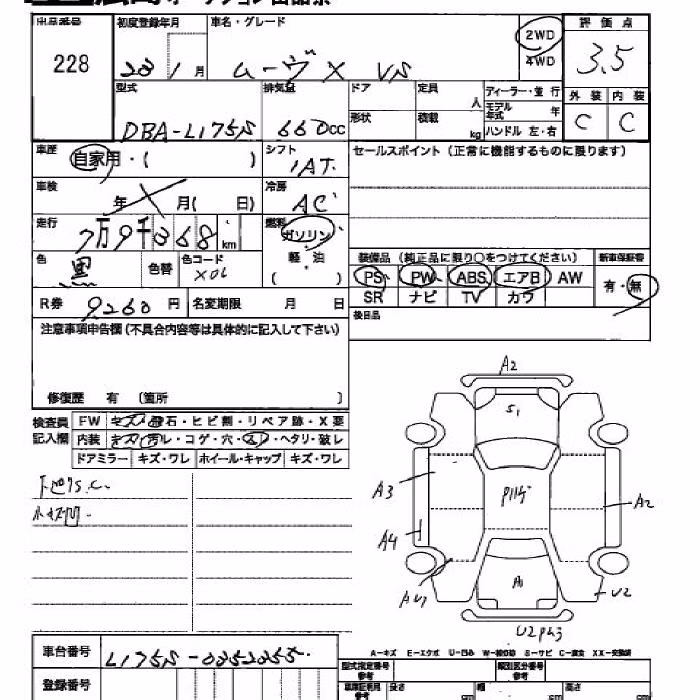 出品番号 初度登録年月 車名・グレード 評価点
228 23 / 1 月 ムーヴ X VS 2WD 4WD 3.5
型式 排気量 ドア 定員 人 ディーラー・並行 外装 内装
DBA-L175S 660cc 形状 積載 kg モデル年式 年 ハンドル 左・右 C C
車歴 自家用・( ) シフト 1AT. セールスポイント（正常に機能するものに限ります）
車検 年 月( 日) 冷房 AC
走行 7万9千368 km 燃料 ガソリン 軽・油 ( )
色 黒 色替 色コード X06
装備品（純正品に限り○をつけてください） 新車保証書
PS PW ABS エアB AW 有・無
SR ナビ TV カワ
R券 9,260 円 名変期限 月 日 後日品
注意事項申告欄（不具合内容等は具体的に記入して下さい）
修復歴 有 〔箇所 〕
検査員記入欄 FW キズ・飛石・ヒビ割・リペア跡・X要
内装 キズ・汚レ・コゲ・穴・スレ・ヘタリ・破レ
ドアミラー キズ・ワレ ホイール・キャップ キズ・ワレ
下廻S.C.
小キズ凹.
A2
S1
A3
A2
A4
A
U2
U2
車台番号 L175S-0352255.
A-キズ E-エクボ U-凹み W-補修跡 S-サビ C-腐食 XX-交換済
登録番号 型式指定番号 参考 類別区分番号 参考
長さ cm 幅 cm 高さ cm